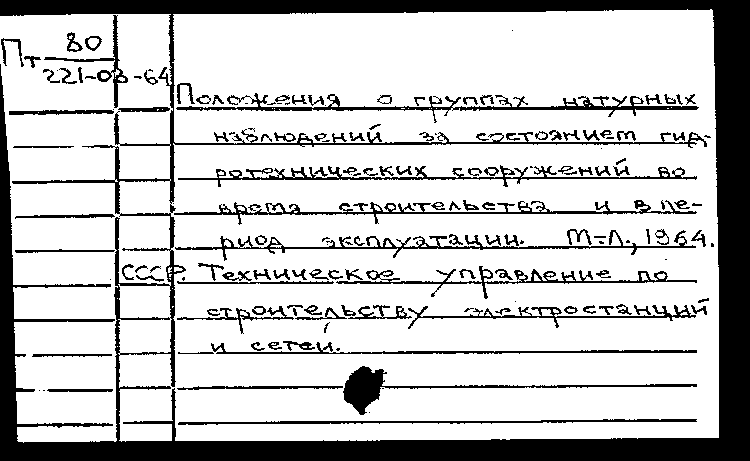 Пт 80
221-03-64
Положения о группах натурных
наблюдений за состоянием гид-
ротехнических сооружений во
время строительства и в пе-
риод эксплуатации. М-Л., 1964.
СССР. Техническое управление по
строительству электростанций
и сетей.